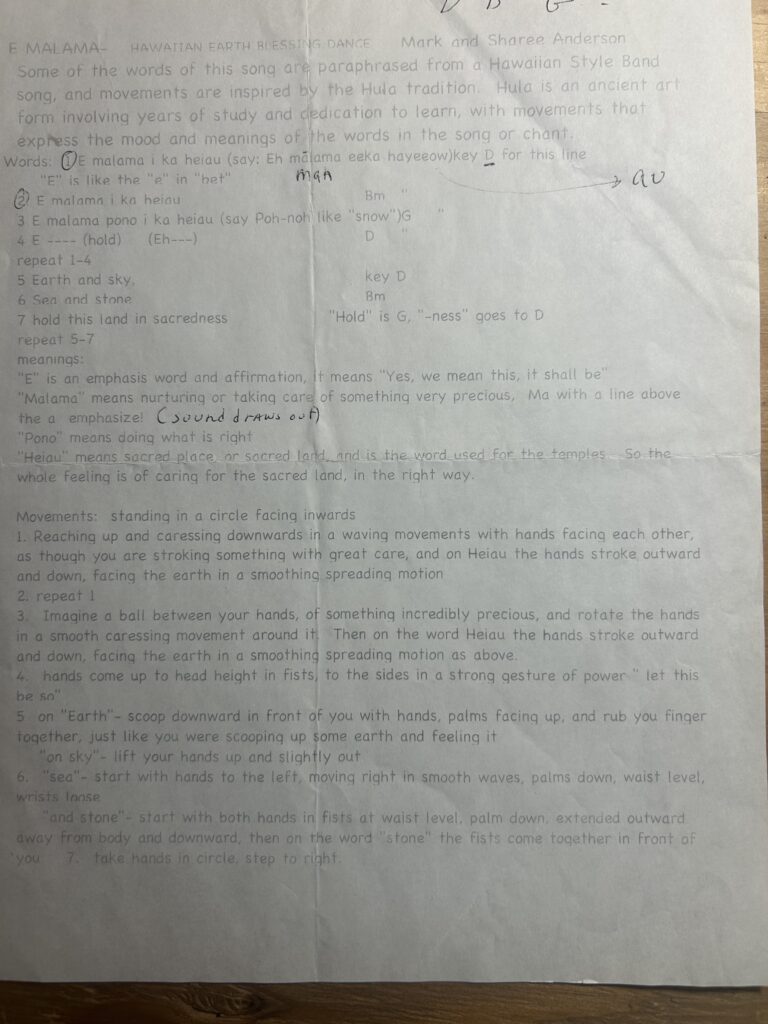 D B G -
E MALAMA- HAWAIIAN EARTH BLESSING DANCE Mark and Sharee Anderson
Some of the words of this song are paraphrased from a Hawaiian Style Band
song, and movements are inspired by the Hula tradition. Hula is an ancient art
form involving years of study and dedication to learn, with movements that
express the mood and meanings of the words in the song or chant.
Words: ① E malama i ka heiau (say: Eh mālama eeka hayeeow)key D for this line
"E" is like the "e" in "bet" mαα → au
② E malama i ka heiau Bm "
3 E malama pono i ka heiau (say Poh-noh like "snow")G "
4 E ---- (hold) (Eh---) D "
repeat 1-4
5 Earth and sky, key D
6 Sea and stone Bm
7 hold this land in sacredness "Hold" is G, "-ness" goes to D
repeat 5-7
meanings:
"E" is an emphasis word and affirmation, it means "Yes, we mean this, it shall be"
"Malama" means nurturing or taking care of something very precious, Ma with a line above
the a emphasize! (sound draws out)
"Pono" means doing what is right
"Heiau" means sacred place, or sacred land, and is the word used for the temples. So the
whole feeling is of caring for the sacred land, in the right way.
Movements: standing in a circle facing inwards
1. Reaching up and caressing downwards in a waving movements with hands facing each other,
as though you are stroking something with great care, and on Heiau the hands stroke outward
and down, facing the earth in a smoothing spreading motion
2. repeat 1
3. Imagine a ball between your hands, of something incredibly precious, and rotate the hands
in a smooth caressing movement around it. Then on the word Heiau the hands stroke outward
and down, facing the earth in a smoothing spreading motion as above.
4. hands come up to head height in fists, to the sides in a strong gesture of power " let this
be so"
5 on "Earth"- scoop downward in front of you with hands, palms facing up, and rub you finger
together, just like you were scooping up some earth and feeling it
"on sky"- lift your hands up and slightly out
6. "sea"- start with hands to the left, moving right in smooth waves, palms down, waist level,
wrists loose
"and stone"- start with both hands in fists at waist level, palm down, extended outward
away from body and downward, then on the word "stone" the fists come together in front of
you 7. take hands in circle, step to right.